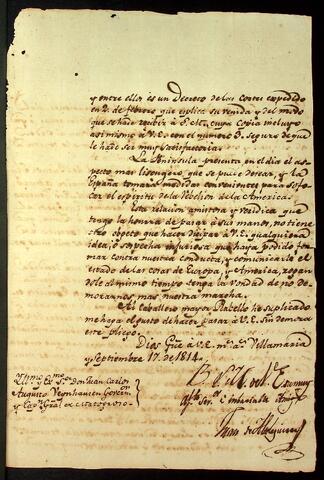 y entre ellos es un Decreto de las Cortes expedido
en 2 de febrero que explica su venida y del modo
que se hade recibir à S. M., cuya Copia incluyo
asimismo à V. E. con el numero 3. seguro de que
le hade ser muy satisfactoria.
La Peninsula presenta en el dia el as-
pecto mas lisongero que se puede desear, y la
España tomará medidas convenientes para sofo-
car el espiritu de la Rebelion de la America.
Esta relacion amistosa y veridica que
tengo la honrra de pasar à sus manos, no tiene
otro objeto que hacer disipar à V. E. qualquiera
idea, ó sospecha injuriosa que haya podido for-
mar contra nuestra conducta, y comunicarle el
estado de las cosas de Europa, y America, rogan
dole al mismo tiempo tenga la vondad de no de-
morarnos mas nuestra marcha.
El Caballero mayor ha suplicado
me haga el gusto de hacer pasar à V. E. sin demora
este pliego.
Dios Gue. à V. E. ms. as. Villamaria
y Septiembre 17. de 1814.
Yllmo. y Exmo. Sr. Don Juan Carlos
Augusto Govern.
y Capn. Gral.
B. L. M. de V. E. su muy
Servr. é
Juan de